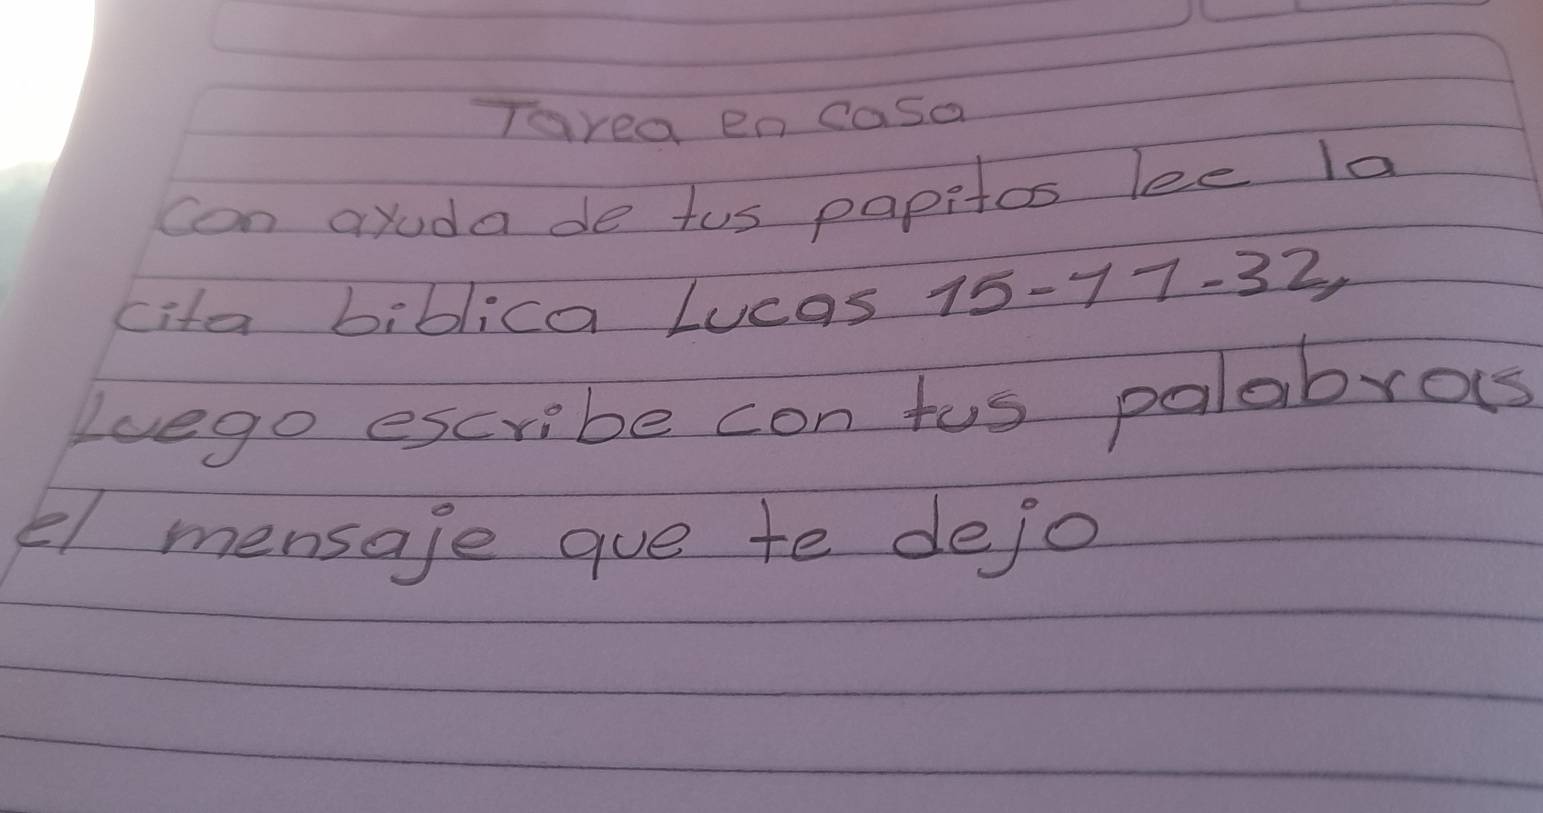 Tarea en casa
con ayuda de tus papitos lee la
cita biblica Lucas 15-11-32,
Luego escribe con tus palabras
el mensaje que te dejo